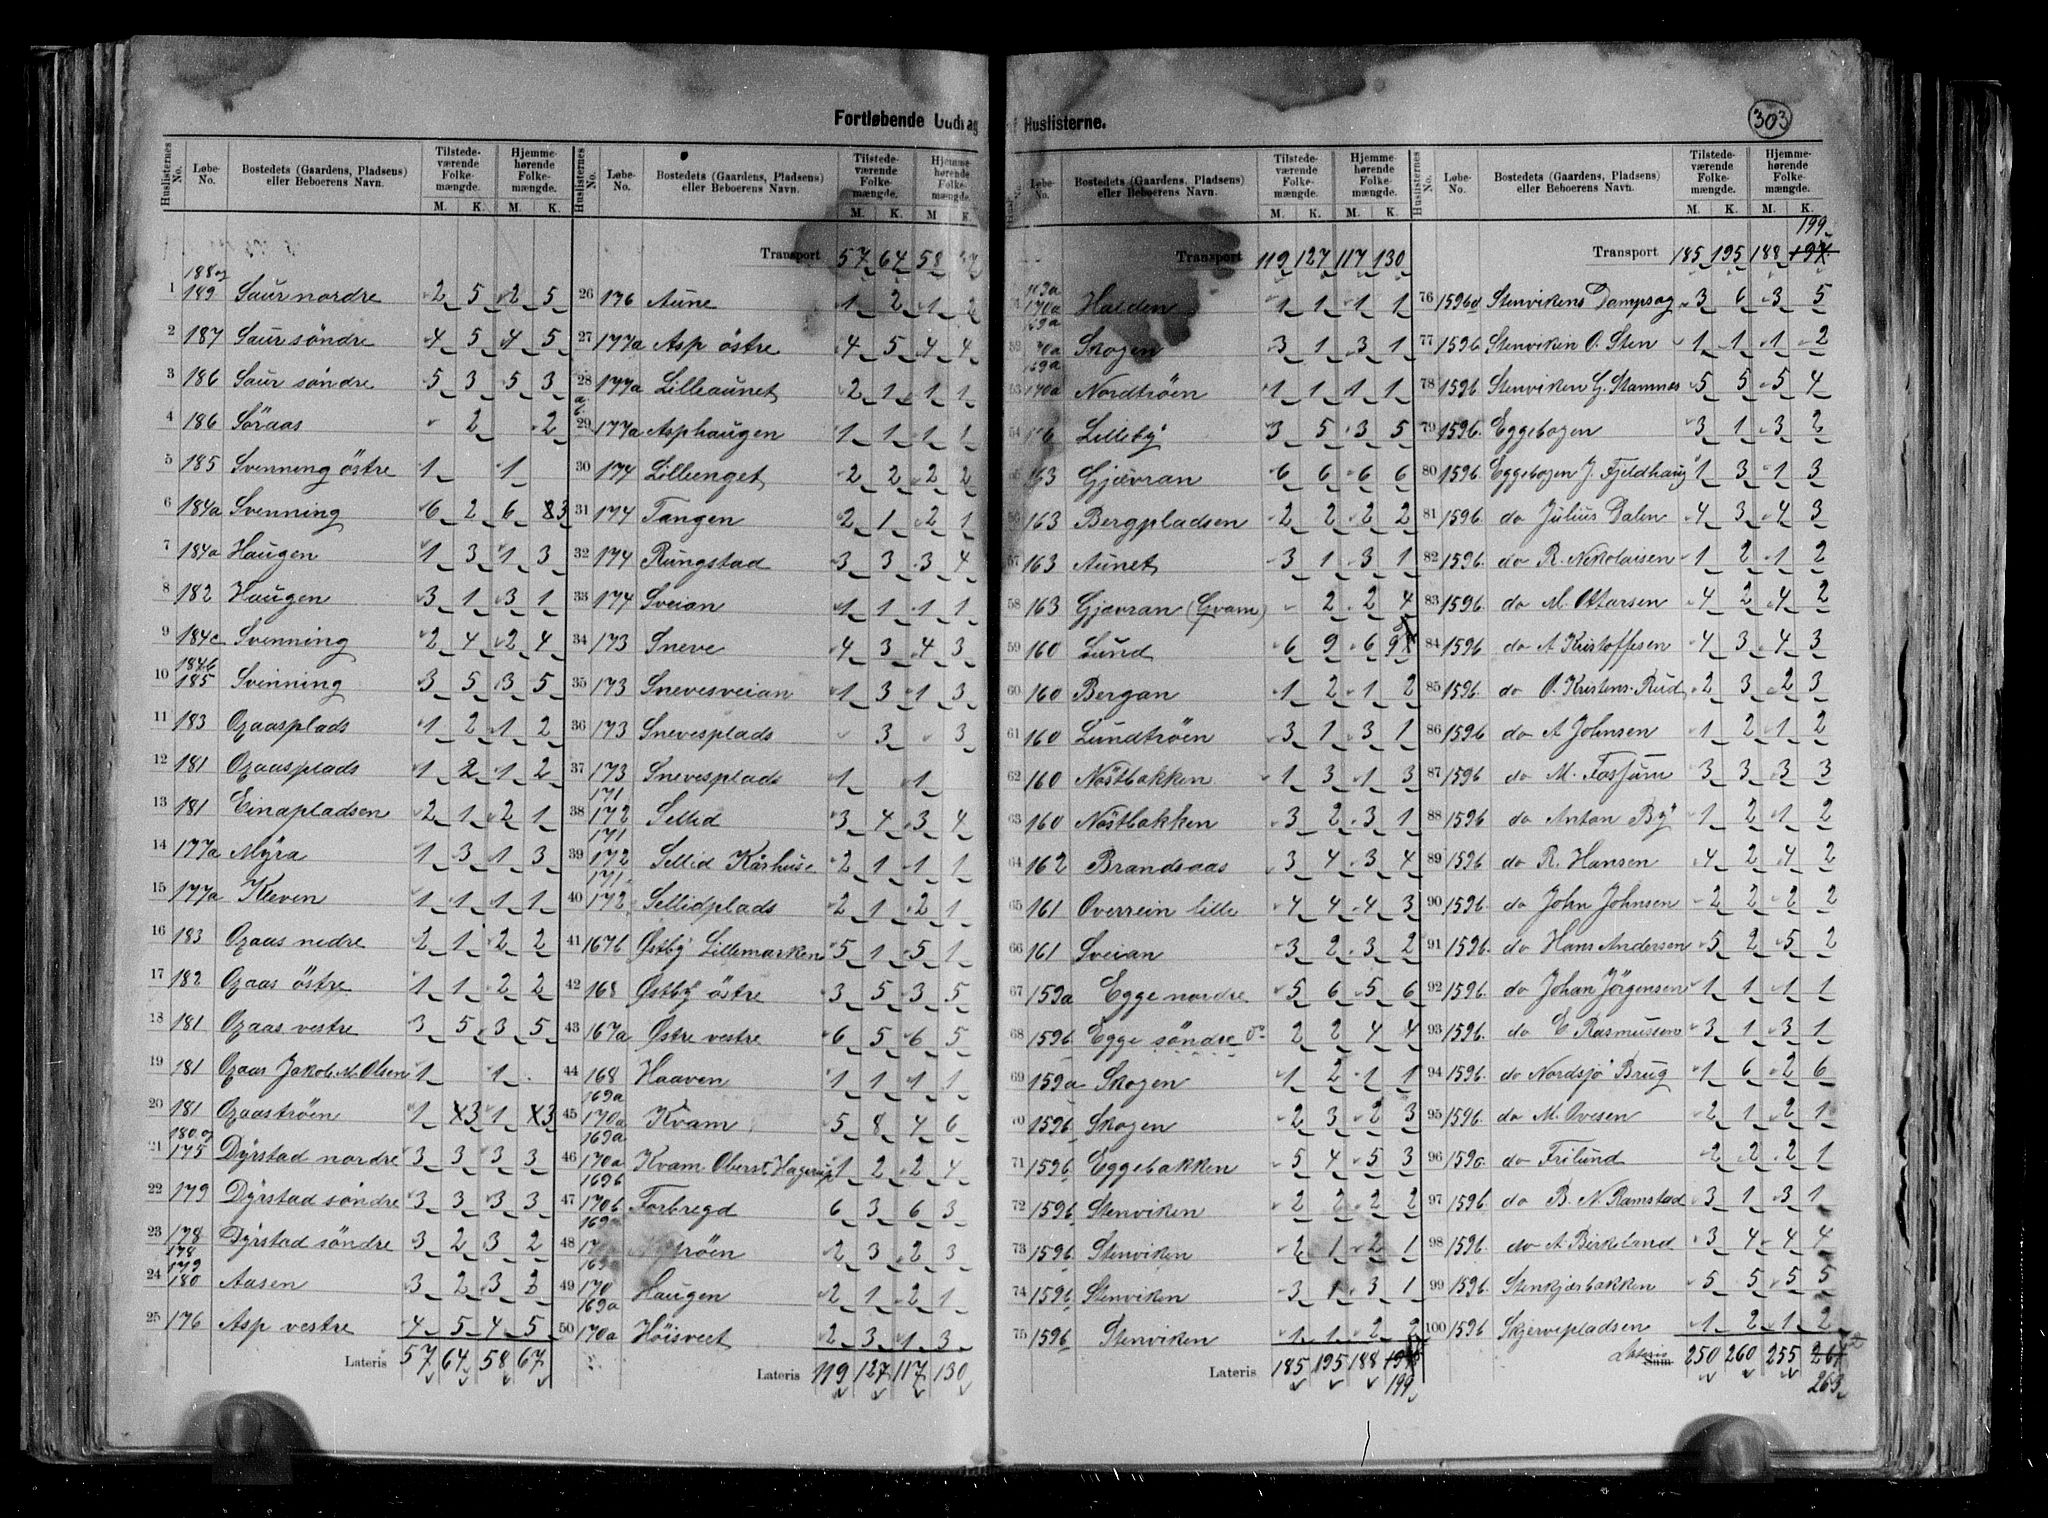 Fortløbende Uddrag af Huslisterne.
303
Huslisternes No. Løbe-No. Bostedets (Gaardens, Pladsens) eller Beboerens Navn. Tilstedeværende Folkemængde. M. K. Hjemmehørende Folkemængde. M. K.
1 188 og 189 Saur nordre 2 5 2 5
2 187 Saur söndre 4 5 4 5
3 186 Saur söndre 5 3 5 3
4 186 Söraas 2 2
5 185 Svenning östre 1 1
6 184a Svenning 6 2 6 3
7 184a Haugen 1 3 1 3
8 182 Haugen 3 1 3 1
9 184c Svenning 2 4 2 4
10 184b 185 Svenning 3 5 3 5
11 183 Ogaasplads 1 2 1 2
12 181 Ogaasplads 1 2 1 2
13 181 Einapladsen 2 1 2 1
14 177a Myra 1 3 1 3
15 177a Kleven 1 1 1 1
16 183 Ogaas nedre 2 1 2 2
17 182 Ogaas östre 1 1 2 2
18 181 Ogaas vestre 3 5 3 5
19 181 Ogaas Jakob M. Olsen 1 1
20 181 Ogaaströen 1 3 1 3
21 180 og 175 Dyrstad nordre 3 3 3 3
22 179 Dyrstad söndre 3 3 3 3
23 178 Dyrstad söndre 3 2 3 2
24 178 179 180 Aasen 3 2 3 2
25 176 Asp vestre 4 5 4 5
Lateris 57 64 58 67
Huslisternes No. Løbe-No. Bostedets (Gaardens, Pladsens) eller Beboerens Navn. Tilstedeværende Folkemængde. M. K. Hjemmehørende Folkemængde. M. K.
Transport 57 64 58 67
26 176 Aune 1 2 1 2
27 177a Asp östre 4 5 4 4
28 177a Lilleaunet 2 1 1 1
29 177a Asphaugen 1 1 1 1
30 174 Lillenget 2 2 2 2
31 174 Tangen 2 1 2 1
32 174 Rungstad 3 3 3 4
33 174 Sveian 1 1 1 1
34 173 Sneve 4 3 4 3
35 173 Snevesveian 1 3 1 3
36 173 Snevesplads 3 3
37 173 Snevesplads 1 1
38 171 172 Sellid 3 4 3 4
39 171 172 Sellid Kårhus 2 1 1 1
40 171 172 Sellidplads 2 1 2 1
41 167b Östby Lillemarken 5 1 5 1
42 168 Östby östre 3 5 3 5
43 167a Östre vestre 6 5 6 5
44 168 Haaven 1 1 1 1
45 169a 170a Kvam 5 8 4 6
46 169a 170a Kvam Oberst Hagerup 1 2 2 4
47 169b 170b Forbregd 6 3 6 3
48 2 3 2 3
49 170 Haugen 2 1 2 1
50 169a 170a Höisveet 2 3 1 3
Lateris 119 127 117 130
Løbe-No. Bostedets (Gaardens, Pladsens) eller Beboerens Navn. Tilstedeværende Folkemængde. M. K. Hjemmehørende Folkemængde. M. K.
Transport 119 127 117 130
169a 170a Halden 1 1 1 1
52 169a 70a Skogen 3 1 3 1
53 169a 170a Nordtröen 1 1 1 1
54 Lilleby 3 5 3 5
163 Gjævran 6 6 6 6
56 163 Bergpladsen 2 2 2 2
57 163 Aunet 3 1 3 1
58 163 Gjævran (Gvam) 2 2 4
59 160 Lund 6 9 6 9
60 160 Bergan 1 2 1 2
61 160 Lundtröen 3 1 3 1
62 160 Nöstbakken 1 3 1 3
63 160 Nöstbakken 3 2 3 1
64 162 Brandsaas 3 4 3 4
65 161 Overrein lille 4 4 4 3
66 161 Sveian 3 2 3 2
67 159a Egge nordre 5 6 5 6
68 159b Egge söndre 2 2 4 4
69 159a Skogen 1 2 1 1
70 159b Skogen 2 3 2 3
71 159b Eggebakken 5 4 5 3
72 159b Stenviken 2 2 2 2
73 159b Stenviken 2 1 2 1
74 159b Stenviken 3 1 3 1
75 159b Stenviken 1 1 2 2
Lateris 185 195 188 199
Huslisternes No. Løbe-No. Bostedets (Gaardens, Pladsens) eller Beboerens Navn. Tilstedeværende Folkemængde. M. K. Hjemmehørende Folkemængde. M. K.
199
Transport 185 195 188 197
76 159b Stenvikens Dampsag 3 6 3 5
77 159b Stenviken O. Sten 1 1 1 2
78 159b Stenviken G. Stamnes 5 5 5 4
79 159b. Eggebogen 3 1 3 2
80 159b. Eggebogen J. Fjeldhaug 1 3 1 3
81 159b. do Julius Dalen 4 3 4 3
82 159b. do R. Nikolaisen 1 2 1 2
83 159b. do M. Ottarsen 4 2 4 2
84 159b do A Kristoffesen 4 3 4 3
85 159b. do O. Kristens. Rud 2 3 2 3
86 159b do A Johnsen 1 2 1 2
87 159b do M. Fossum 3 3 3 3
88 159b do Anton By 1 2 1 2
89 159b do R. Hansen 4 2 4 2
90 159b. do John Johnsen 2 2 2 2
91 159b. do Hans Andersen 5 2 5 2
92 159b. do Johan Jörgensen 1 1 1 1
93 159b. do E Rasmussen 3 1 3 1
94 159b. do Nordsjö Brug 1 6 2 6
95 159b. do M. Ovesen 2 1 2 1
96 159b do Frilund 2 2 2 1
97 159b. do B. N. Ramstad 3 1 3 1
98 159b. do A. Birkeland 3 4 4 4
99 159b. Stenkjærbakken 5 5 5 5
100 159b Skjervepladsen 1 2 1 2
Lateris Sum 250 260 255 261
263